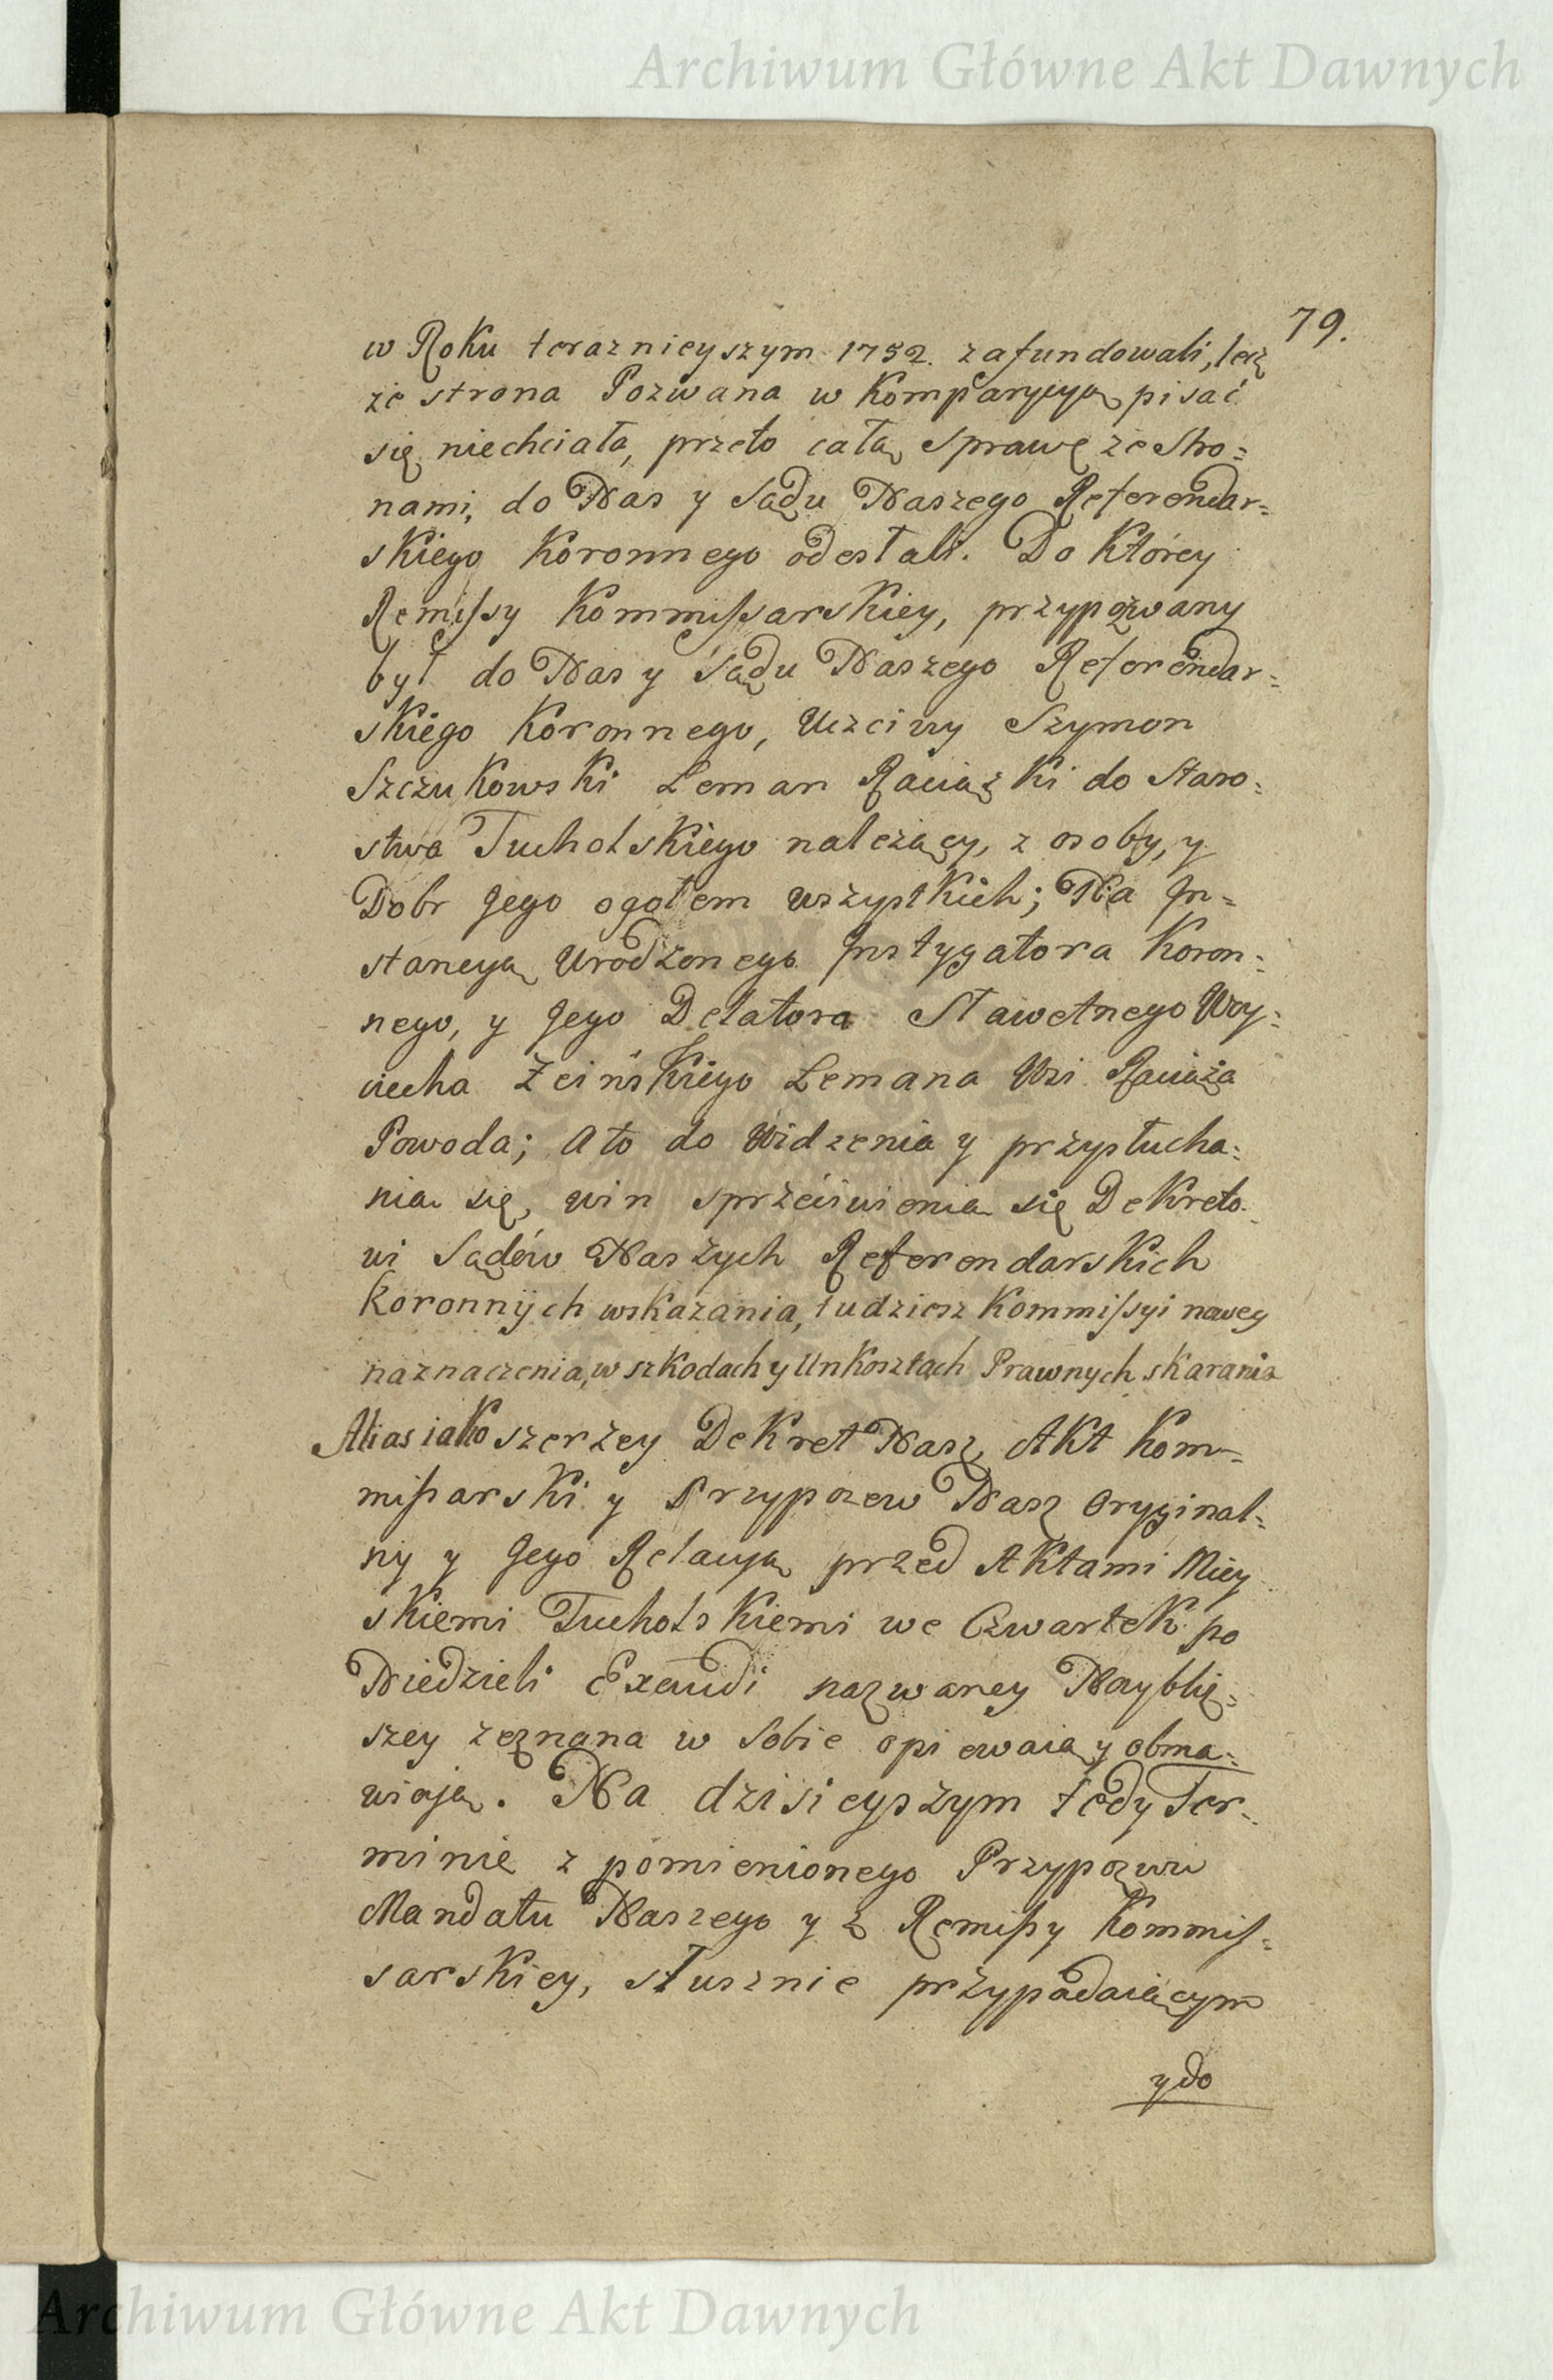 Archiwum Główne Akt Dawnych
79.
w Roku teraznieyszym 1752. zafundowali, lecz
że strona Pozwana w Komparycyą pisać
się niechciała, przeto całą Sprawę ze Stro=
nami, do Nas y Sądu Naszego Referendar=
skiego Koronnego odesłali. Do Którey
Remissy Kommissarskiey, przypozwany
był do Nas y Sądu Naszego Referendar=
skiego Koronnego, Uczciwy Szymon
Szczukowski Leman Raciązki do Staro=
stwa Tucholskiego należący, z osoby, y
Dobr Jego ogołem wszystkich; Na In=
stancyą Urodzonego Instygatora Koron=
nego, y Jego Delatora Sławetnego Woy=
ciecha Żcińskiego Lemana Wsi Raciąża
Powoda; A to do Widzenia y przysłucha=
nia się, win sprzeciwienia się Dekreto=
wi Sądów Naszych Referendarskich
Koronnych wskazania, tudziesz Kommissyi nowey
naznaczenia, w szkodach y Unkosztach Prawnych skarania
Alias iako szerzey Dekret Nasz, Akt Kom=
missarski y Przypozew Nasz Oryginal=
ny y Jego Relacya przed Aktami Miey
skiemi Tucholskiemi we Czwartek po
Niedzieli Exaudi nazwaney Naybliż=
szey zeznana w sobie opiewaią y obma=
wiają. Na dzisieyszym tedy Ter=
minie z pomienionego Przypozwu
Mandatu Naszego y z Remissy Kommis=
sarskiey, słusznie przypadaiącym
y do
Archiwum Główne Akt Dawnych